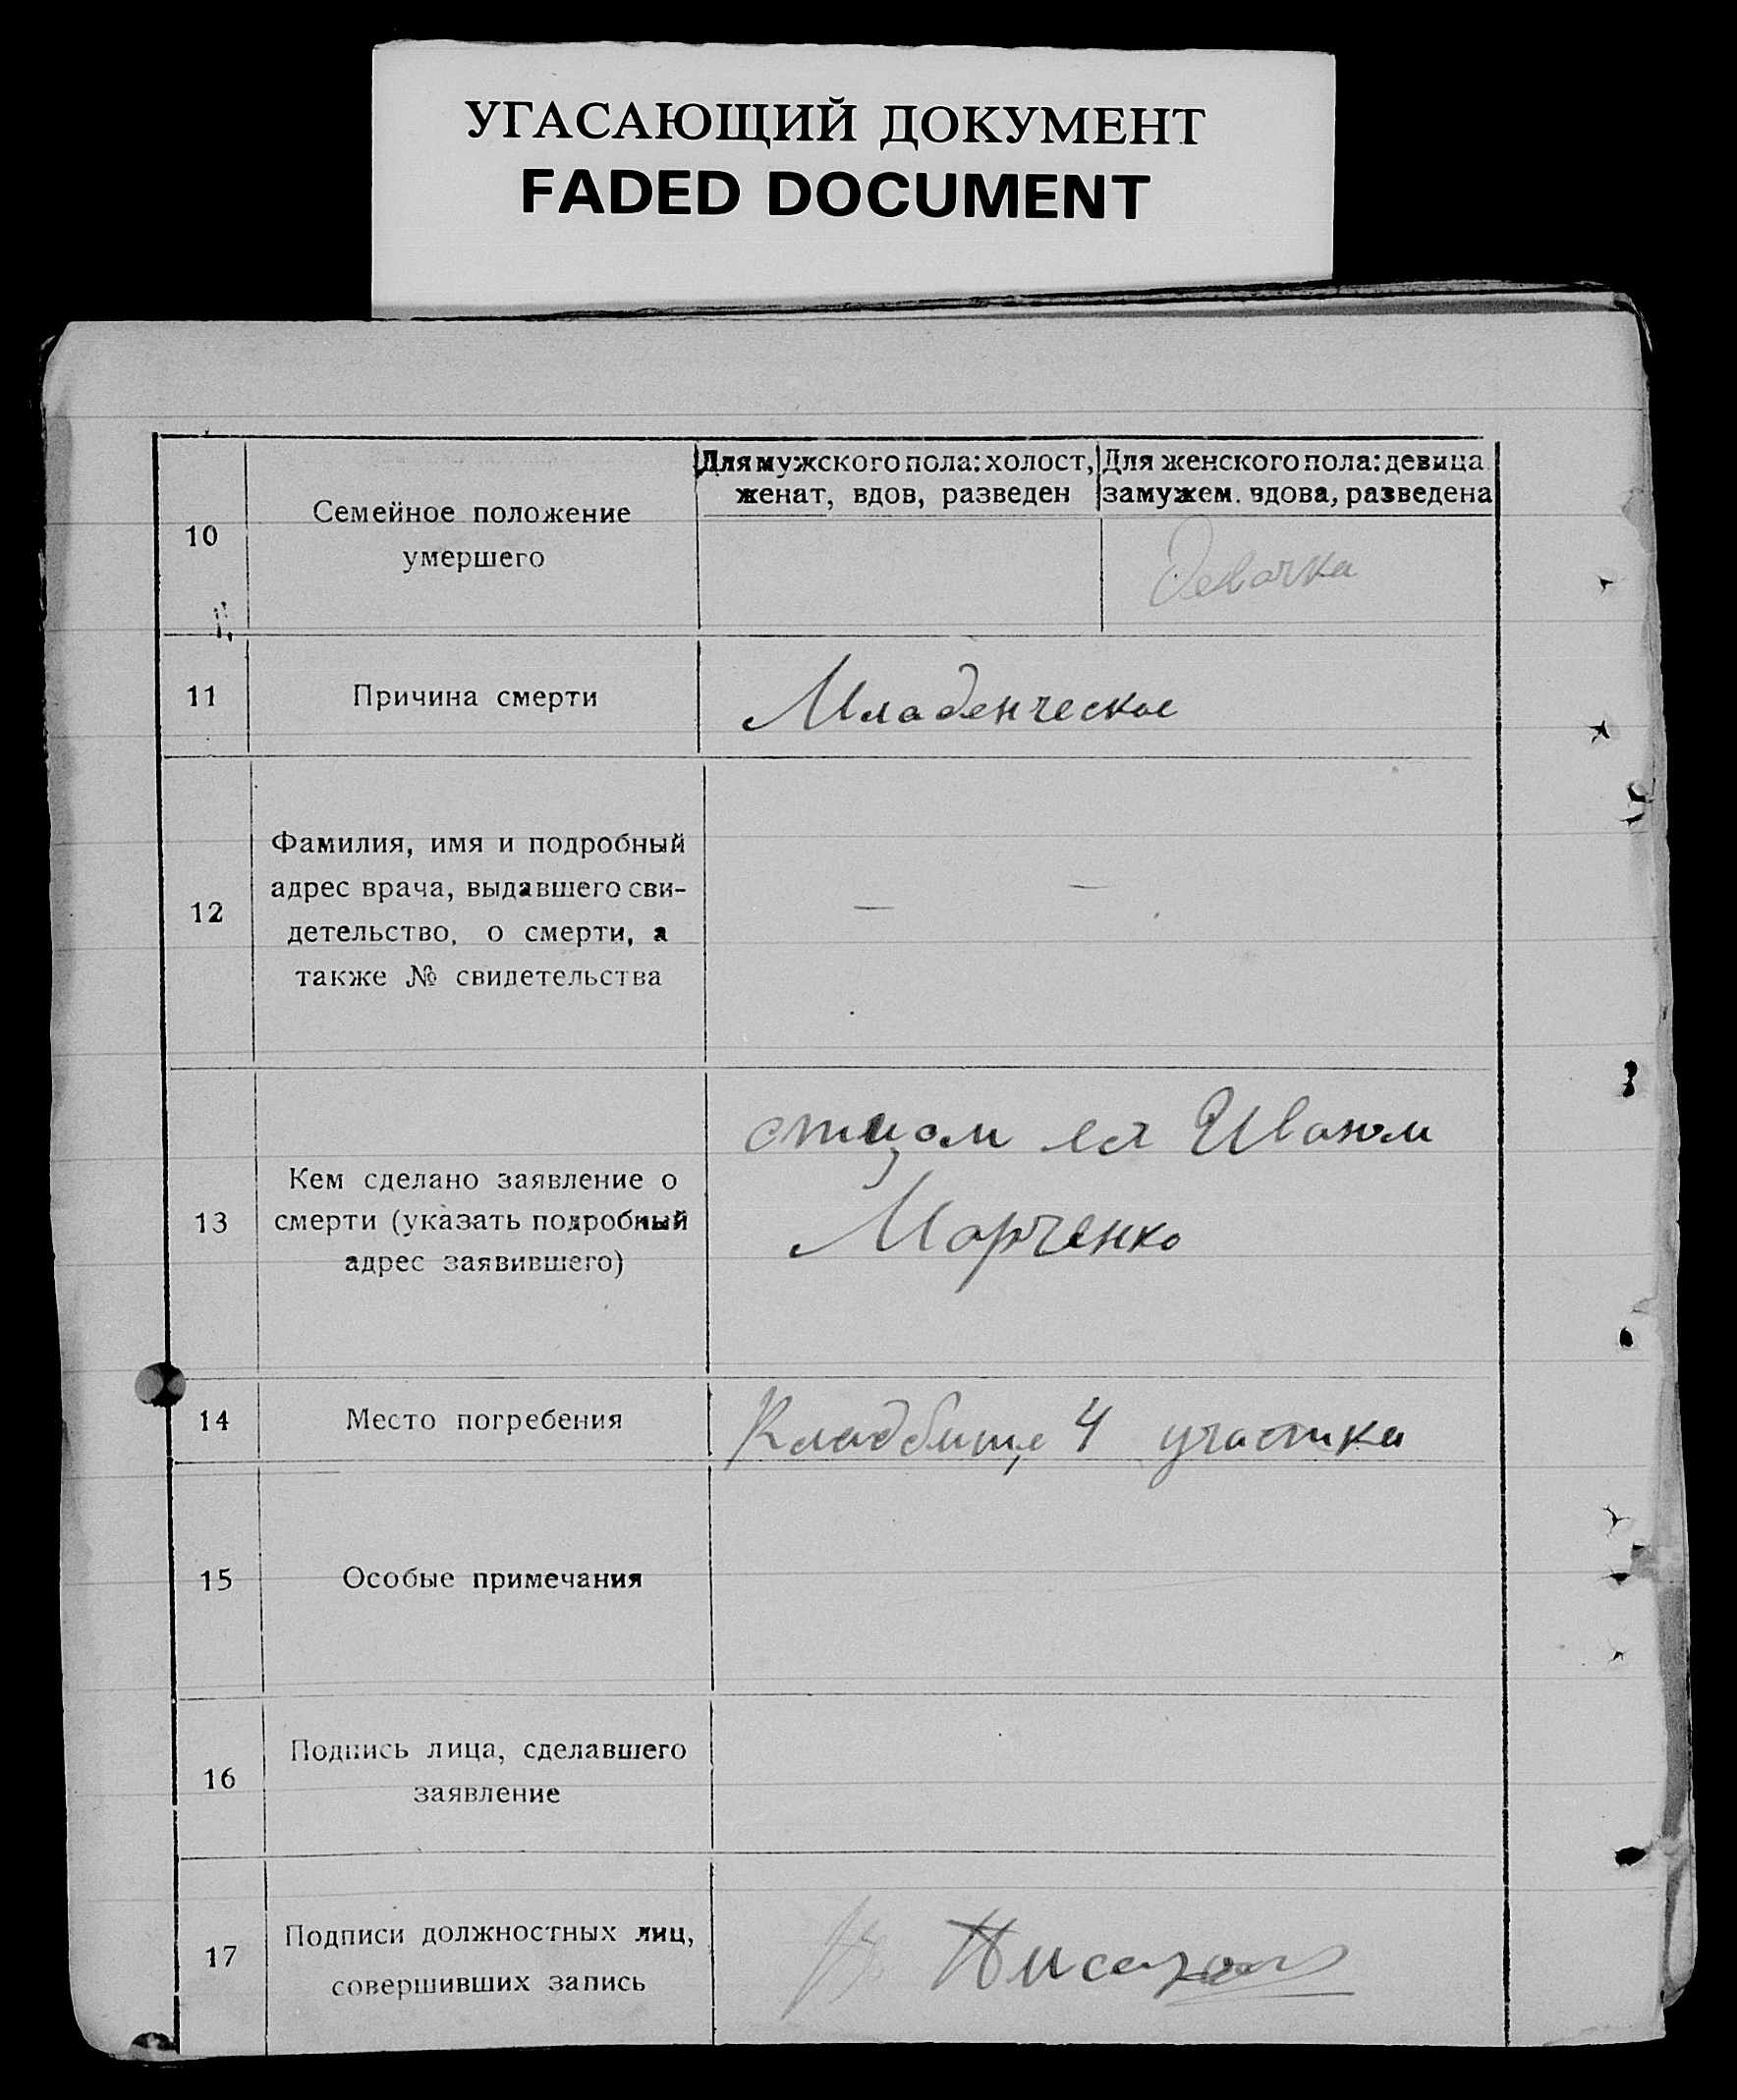 УГАСАЮЩИЙ ДОКУМЕНТ
FADED DOCUMENT
10
Семейное положение
умершего
Для мужского пола: холост,
женат, вдов, разведен
Для женского пола: девица
замужем. вдова, разведена
Девочка
11
Причина смерти
Младенческое
12
Фамилия, имя и подробный
адрес врача, выдавшего сви-
детельство, о смерти, а
также № свидетельства
— —
13
Кем сделано заявление о
смерти (указать подробный
адрес заявившего)
отцом ея Иваном
Марченко
14
Место погребения
Кладбище 4 участка
15
Особые примечания
16
Подпись лица, сделавшего
заявление
17
Подписи должностных лиц,
совершивших запись